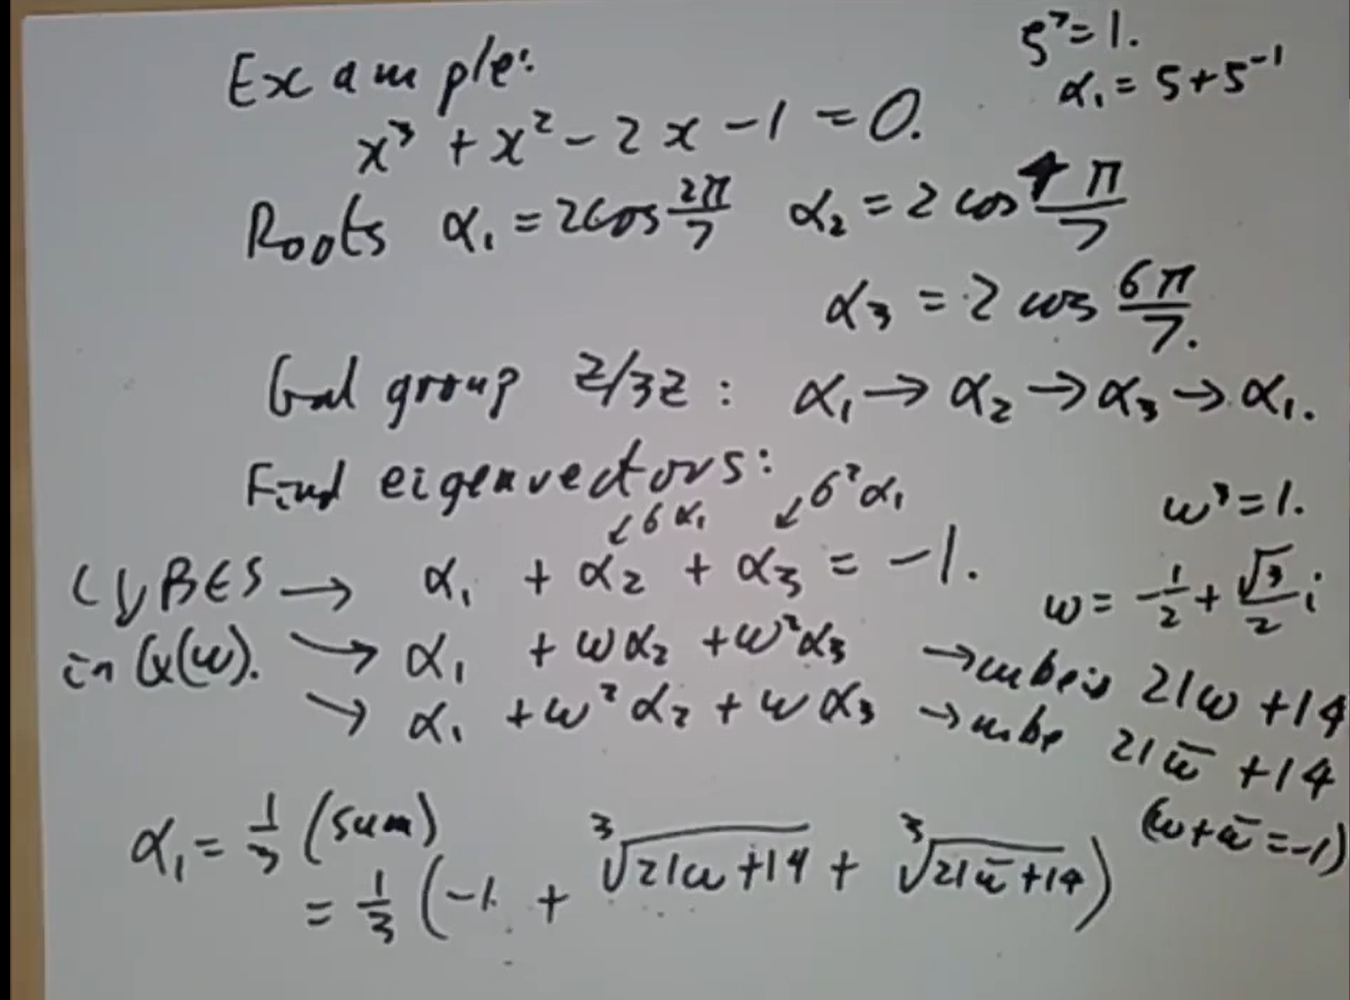 Example:
ζ⁷=1.
α₁ = ζ+ζ⁻¹
x³ + x² - 2x - 1 = 0.
Roots α₁ = 2cos 2π/7 α₂ = 2 cos 4π/7
α₃ = 2 cos 6π/7.
Gal group Z/3Z : α₁ → α₂ → α₃ → α₁.
Find eigenvectors:
↙σα₁ ↙σ²α₁
ω³=1.
CUBES → α₁ + α₂ + α₃ = -1.
ω = -1/2 + √3/2 i
in Q(ω). → α₁ + ωα₂ + ω²α₃ → cube is 21ω + 14
→ α₁ + ω²α₂ + ωα₃ → cube 21ω̄ + 14
(ω+ω̄=-1)
α₁ = 1/3 (sum)
= 1/3 (-1 + ³√21ω+14 + ³√21ω̄+14)